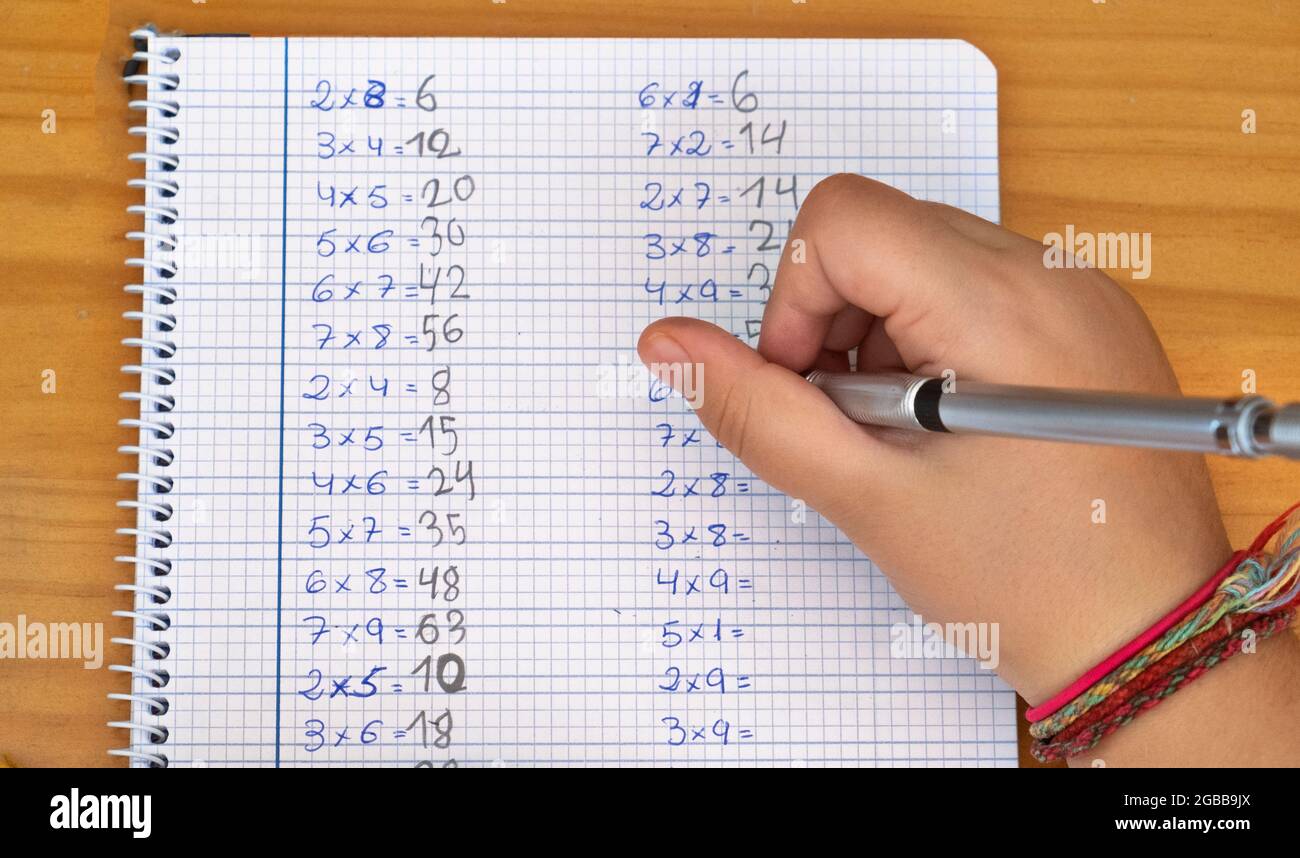 2×3=6
3×4=12
4×5=20
5×6=30
6×7=42
7×8=56
2×4=8
3×5=15
4×6=24
5×7=35
6×8=48
7×9=63
2×5=10
3×6=18
6×1=6
7×2=14
2×7=14
3×8=2
4×9=3
6
7×
2×8=
3×8=
4×9=
5×1=
2×9=
3×9=
alamy
Image ID: 2GBB9JX
www.alamy.com